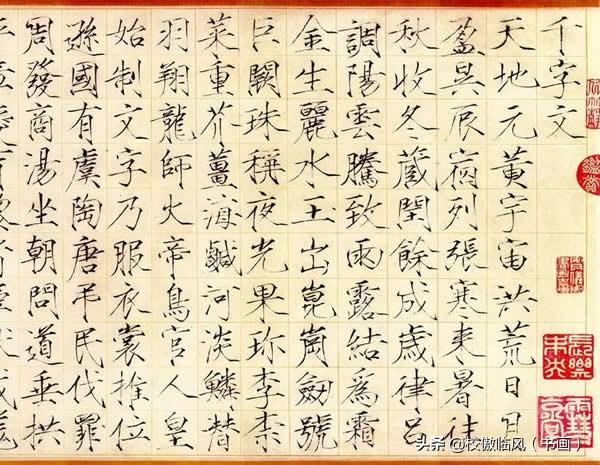 千字文
天地元黃宇宙洪荒日月
盈昃辰宿列張寒来暑往
秋收冬蔵閏餘成歲律吕
調陽雲騰致雨露結爲霜
金生麗水玉出崑崗劒號
巨闕珠稱夜光果珎李柰
菜重芥薑海鹹河淡鱗潛
羽翔龍師火帝鳥官人皇
始制文字乃服衣裳推位
遜國有虞陶唐弔民伐罪
周發商湯坐朝問道垂拱
头条 @校傲临风（书画）